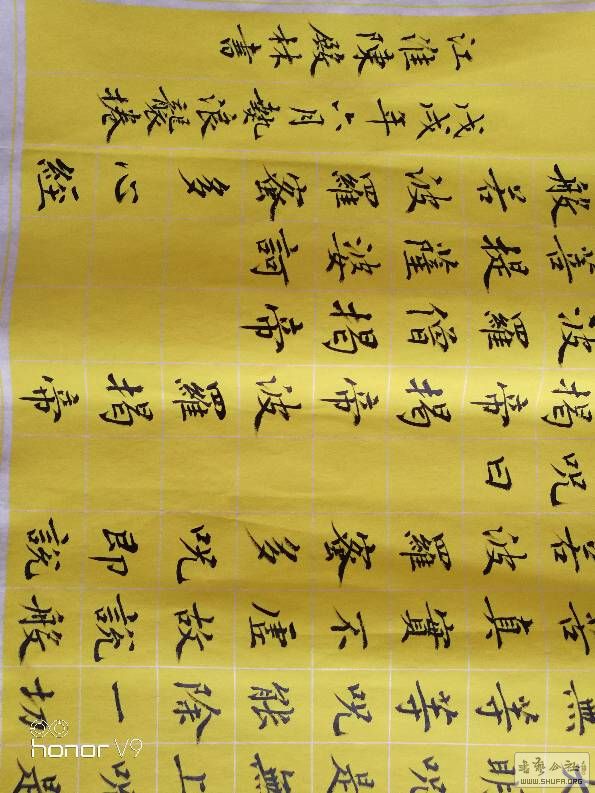 明咒是無上咒是
無等等咒能除一切
苦真實不虛故說般
若波羅蜜多咒即說
咒曰
揭帝揭帝波羅揭帝
波羅僧揭帝
菩提薩婆訶
般若波羅蜜多心經
戊戌年六月熱浪襲捲
江淮陳殿林書
honor V9
WWW.SHUFA.ORG